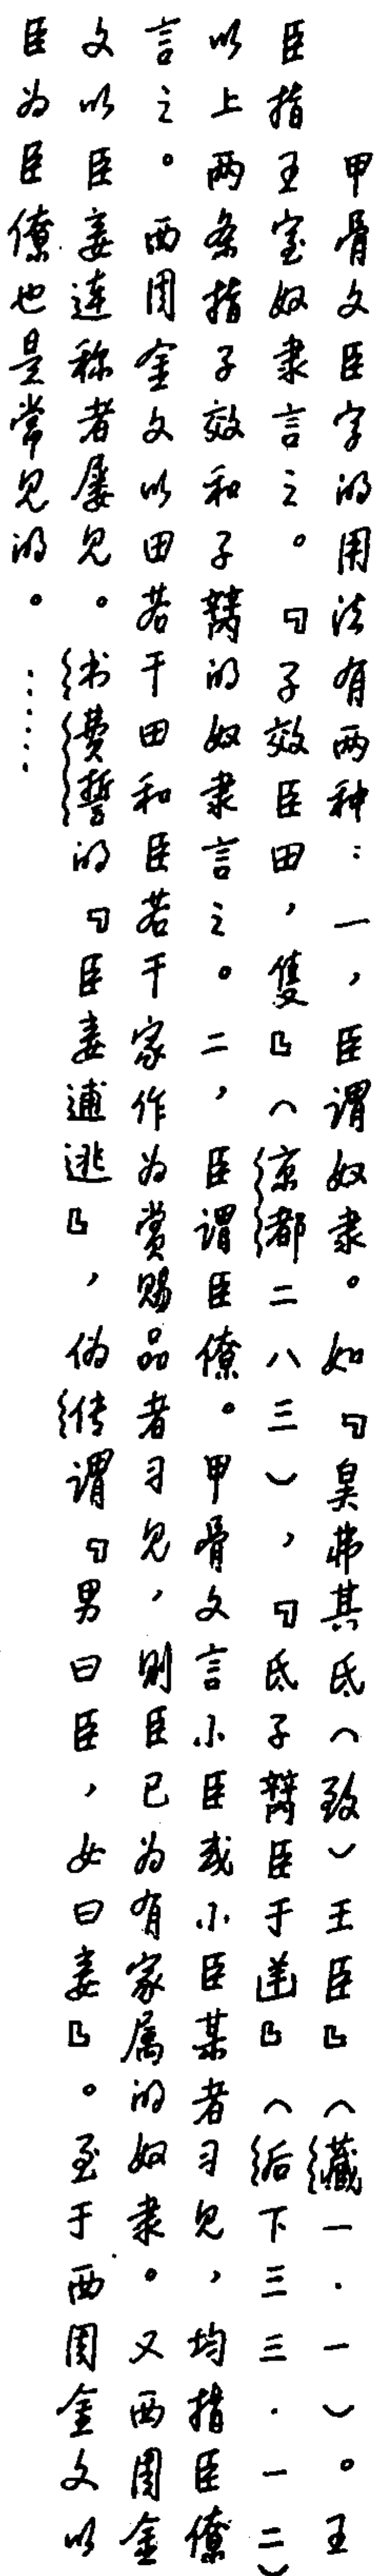 甲骨文臣字的用法有两种：一，臣谓奴隶。如『吴弗其氐（致）王臣』（藏一·一）。王
臣指王室奴隶言之。『子效臣田，隻』（京都二八三），『氐子𦎫臣于』（后下三三·一二）
以上两条指子效和子的奴隶言之。二，臣谓臣僚。甲骨文言小臣或小臣某者习见，均指臣僚
言之。西周金文以田若干田和臣若干家作为赏赐品者习见，则臣已为有家属的奴隶。又西周金
文以臣妾连称者屡见。书费誓的『臣妾逋逃』，伪传谓『男曰臣，女曰妾』。至于西周金文以
臣为臣僚也是常见的。……